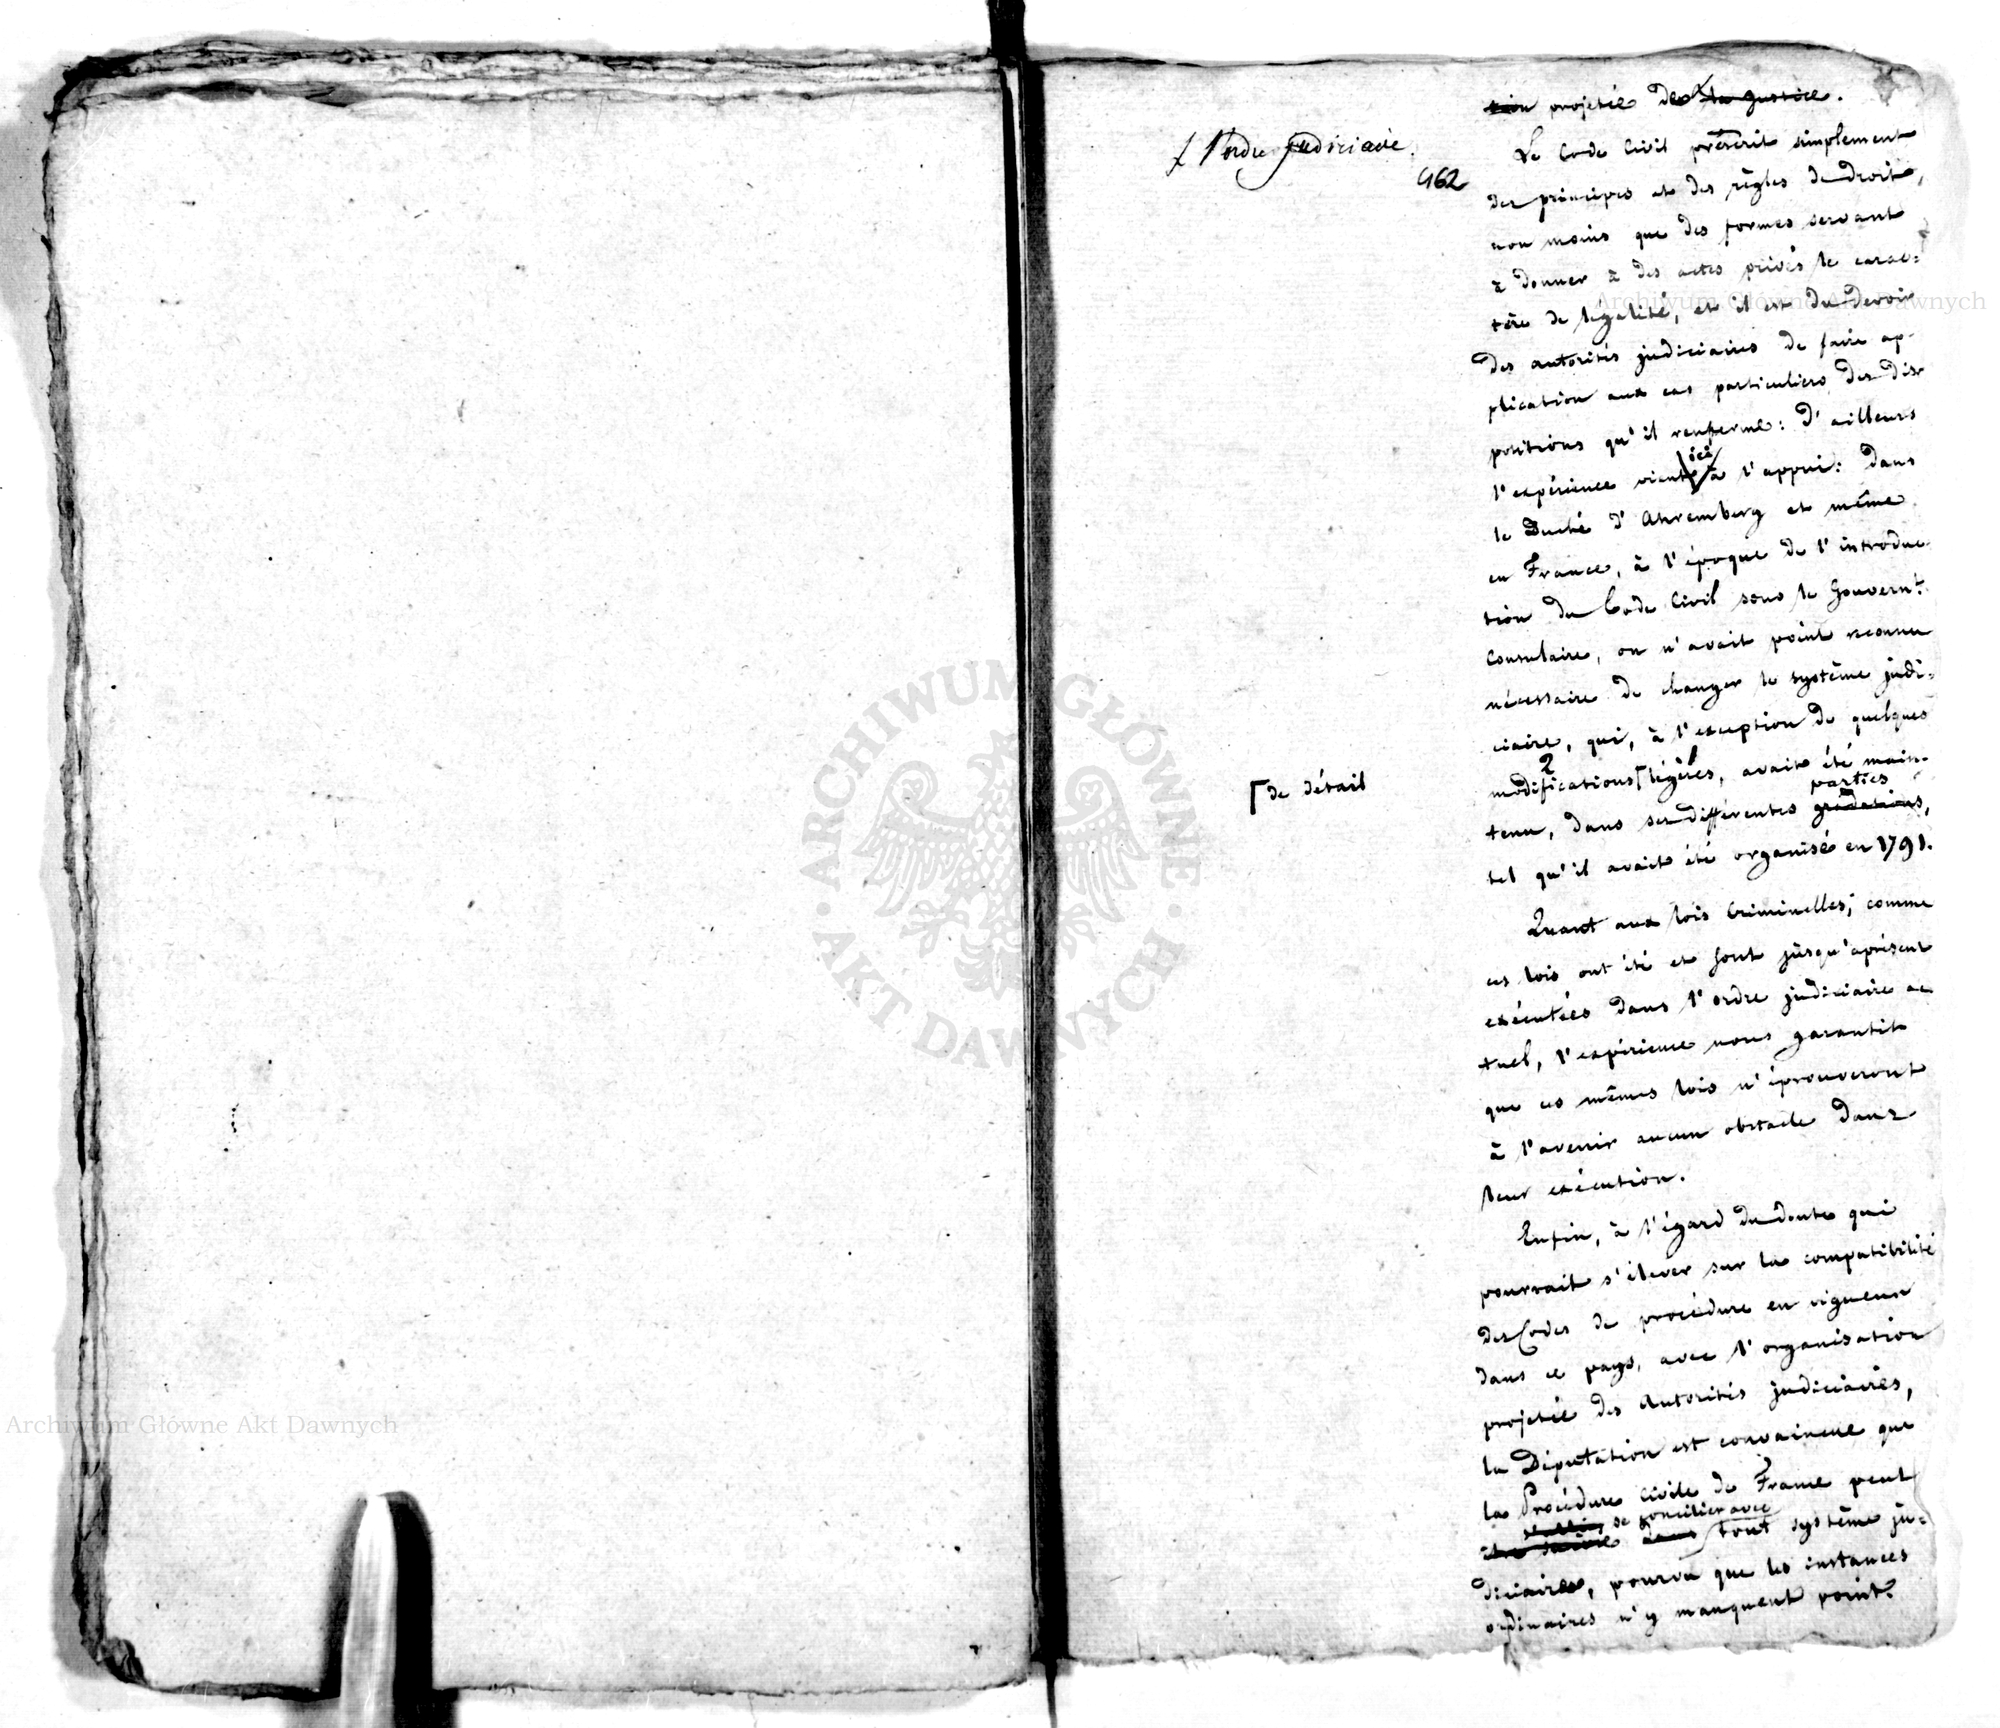 ł l'ordre judiciaire.
462
tion projetée de la Justice.
Le Code Civil prescrit simplement
des principes et des règles de droit,
non moins que des formes servant
à donner à des actes privés le carac=
tère de légalité, et il est du devoir
des autorités judiciaires de faire ap-
plication aux cas particuliers des dis-
positions qu'il renferme: d'ailleurs
l'expérience vient ici à l'appui: dans
le Duché d'Ahremberg et même
en France, à l'époque de l'introduc-
tion du Code Civil sous le Gouvern.t
Consulaire, on n'avait point reconnu
nécessaire de changer le système judi=
ciaire, qui, à l'exception de quelques
modifications légères, avait été main-
⌈ de détail
parties
tenu, dans ses différentes gradations,
tel qu'il avait été organisé en 1791.
Quant aux lois Criminelles, comme
ces lois ont été et sont jusqu'aprésent
exécutées dans l'ordre judiciaire ac-
tuel, l'expérience nous garantit
que ces mêmes lois n'éprouveront
à l'avenir aucun obstacle dans
leur exécution.
Enfin, à l'égard du doute qui
pourrait s'élever sur la compatibilité
des Codes de procédure en vigueur
dans ce pays, avec l'organisation
projetée des Autorités judiciaires,
la Députation est convaincue que
la Procédure civile de France peut
se concilier avec
dans tout système ju=
diciaire, pourvu que les instances
ordinaires n'y manquent point.
Archiwum Główne Akt Dawnych
Archiwum Główne Akt Dawnych
ARCHIWUM GŁÓWNE
AKT DAWNYCH